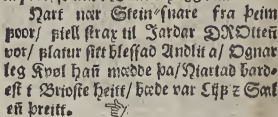 Nart nær Stein-snare fra þeim
þoor/ Fiell strax til Jardar DROtteñ
vor/ flatur sitt blessad Andlit a/ Ognar
leg Kvøl hañ mædde þa/ Hiartad barde-
est i Briooste heitt/ bæde var Lijf z Saal
eñ þreitt.